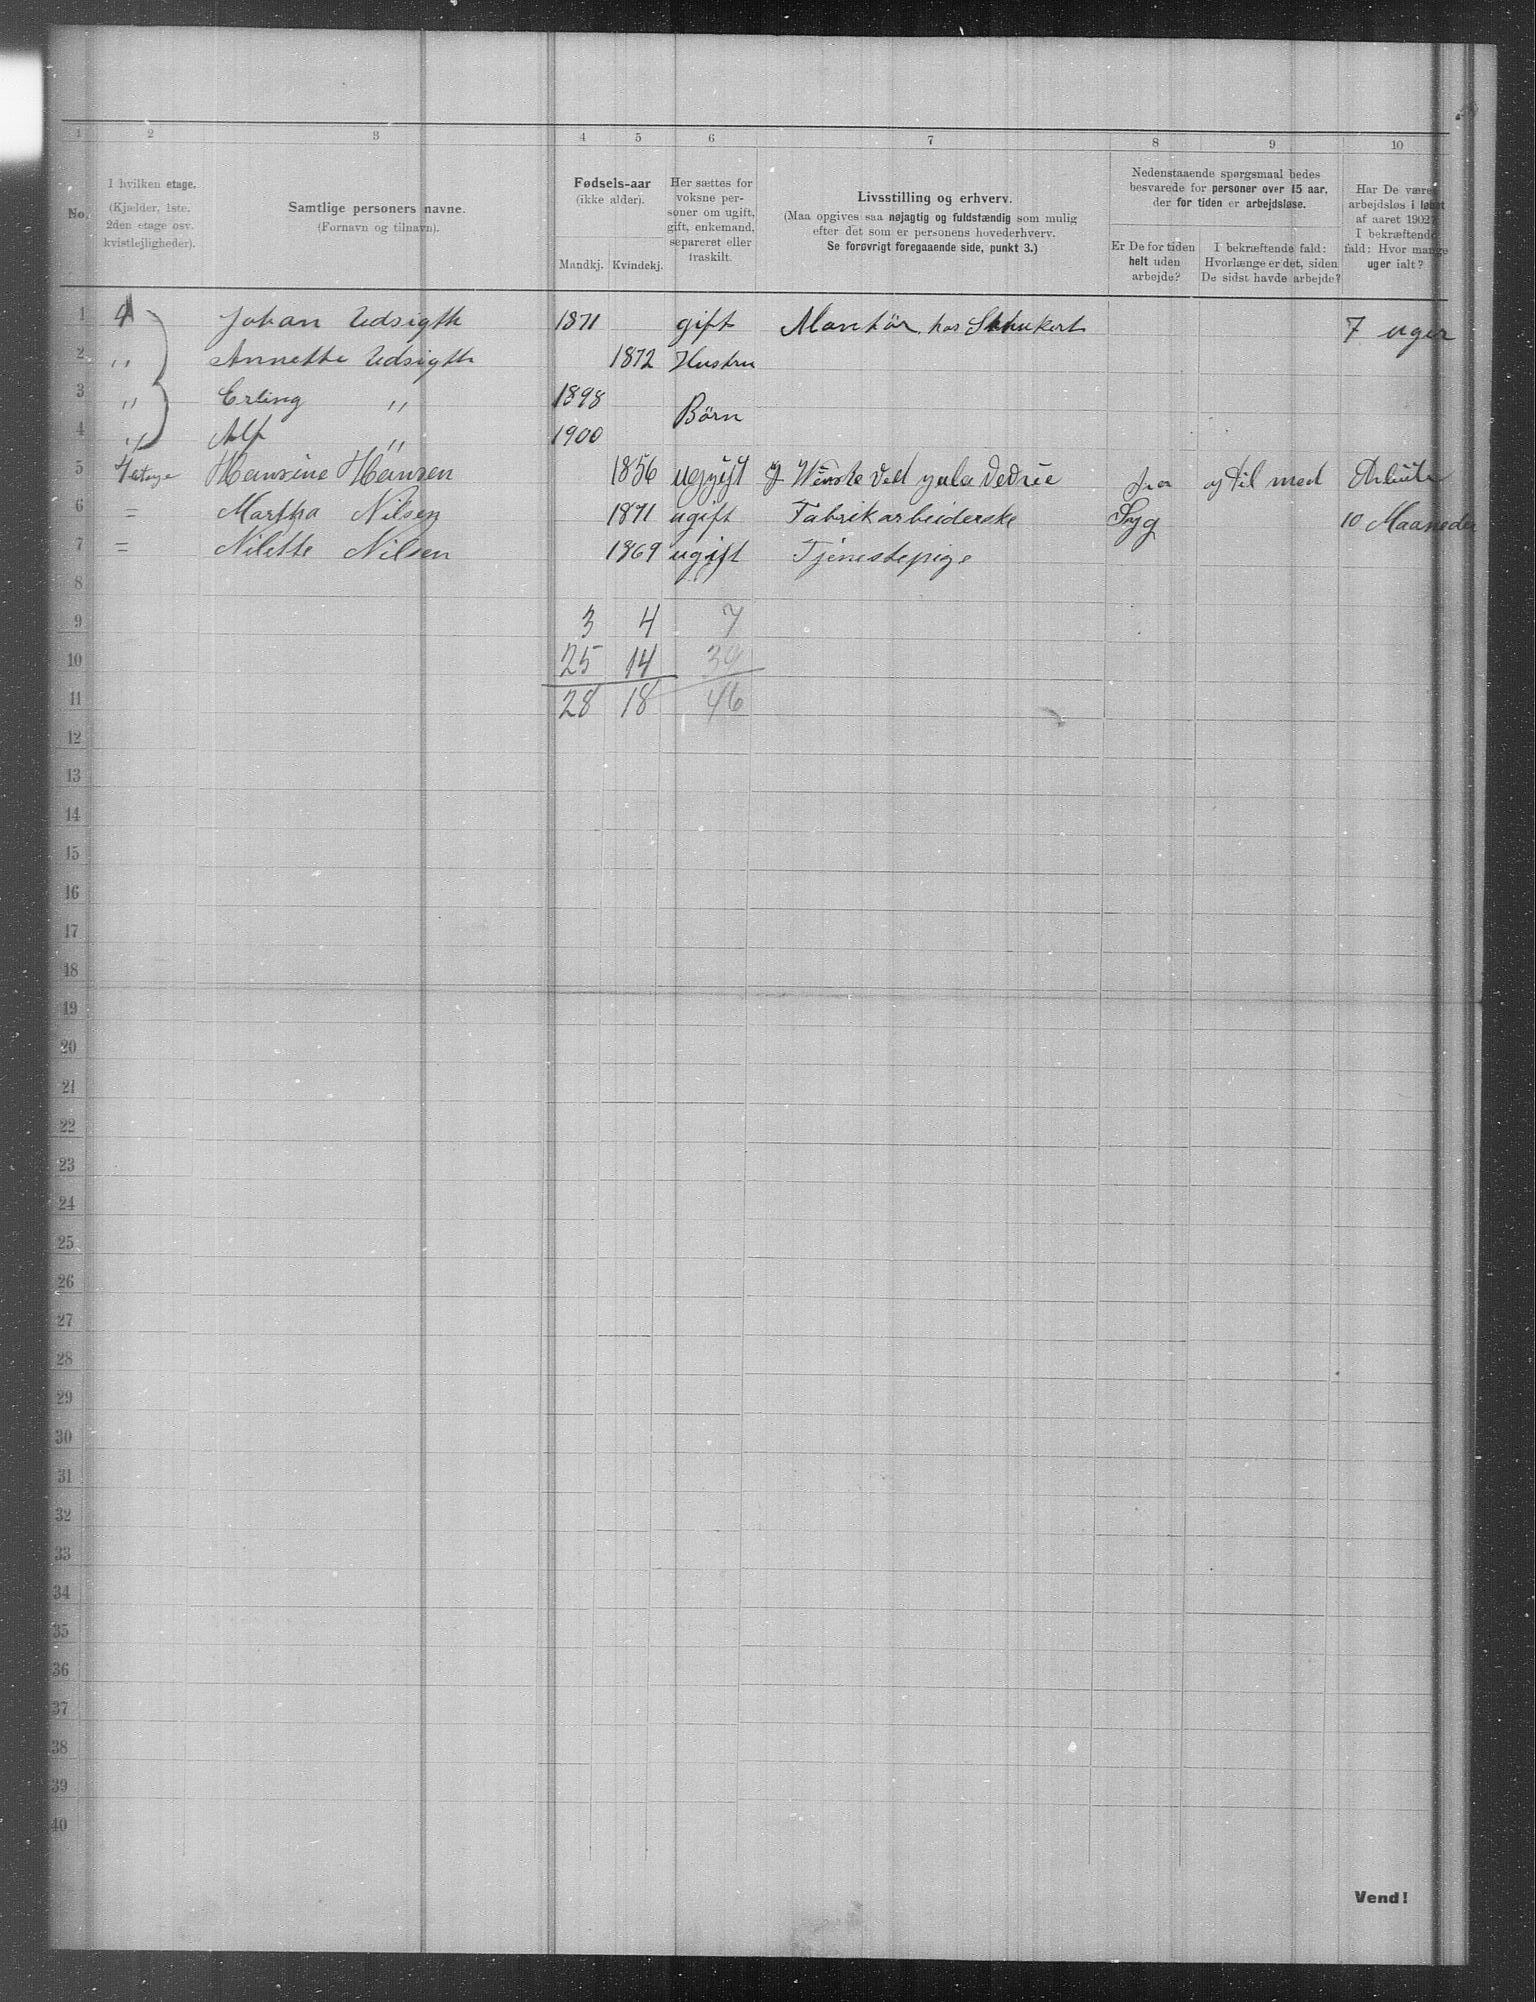 1 2 3 4 5 6 7 8 9 10
No.
I hvilken etage.
(Kjælder, 1ste.
2den etage osv.
kvistlejligheder).
Samtlige personers navne.
(Fornavn og tilnavn).
Fødsels-aar
(ikke alder).
Mandkj. Kvindekj.
Her sættes for
voksne per-
soner om ugift,
gift, enkemand,
separeret eller
fraskilt.
Livsstilling og erhverv.
(Maa opgives saa nøjagtig og fuldstændig som mulig
efter det som er personens hovederhverv.
Se forøvrigt foregaaende side, punkt 3.)
Nedenstaaende spørgsmaal bedes
besvarede for personer over 15 aar,
der for tiden er arbejdsløse.
Er De for tiden
helt uden
arbejde?
I bekræftende fald:
Hvorlænge er det, siden
De sidst havde arbejde?
Har De været
arbejdsløs i løbet
af aaret 1902?
I bekræftende
fald: Hvor mange
uger ialt?
1 4 Johan Udsigth 1871 gift Montör hos Schukert 7 uger
2 " Annette Udsigth 1872 Hustru
3 " Erling " 1898 Börn
4 " Alf " 1900
5 4 etage Hansine Hansen 1856 ugift ved fra og til med Arbeide
6 = Martha Nilsen 1871 ugift Fabrikarbeiderske Syg 10 Maaneder
7 = Nilette Nilsen 1869 ugift Tjenestepige
8
9 3 4 7
10 25 14 39
11 28 18 46
12
13
14
15
16
17
18
19
20
21
22
23
24
25
26
27
28
29
30
31
32
33
34
35
36
37
38
39
40
Vend!